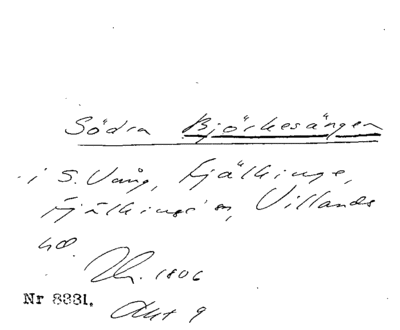 Södra Björkesången
i S. Vång, Fjälkinge,
Fjälkinge sn, Villands
hd.
Lh. 1806
Nr 8331. Akt 9